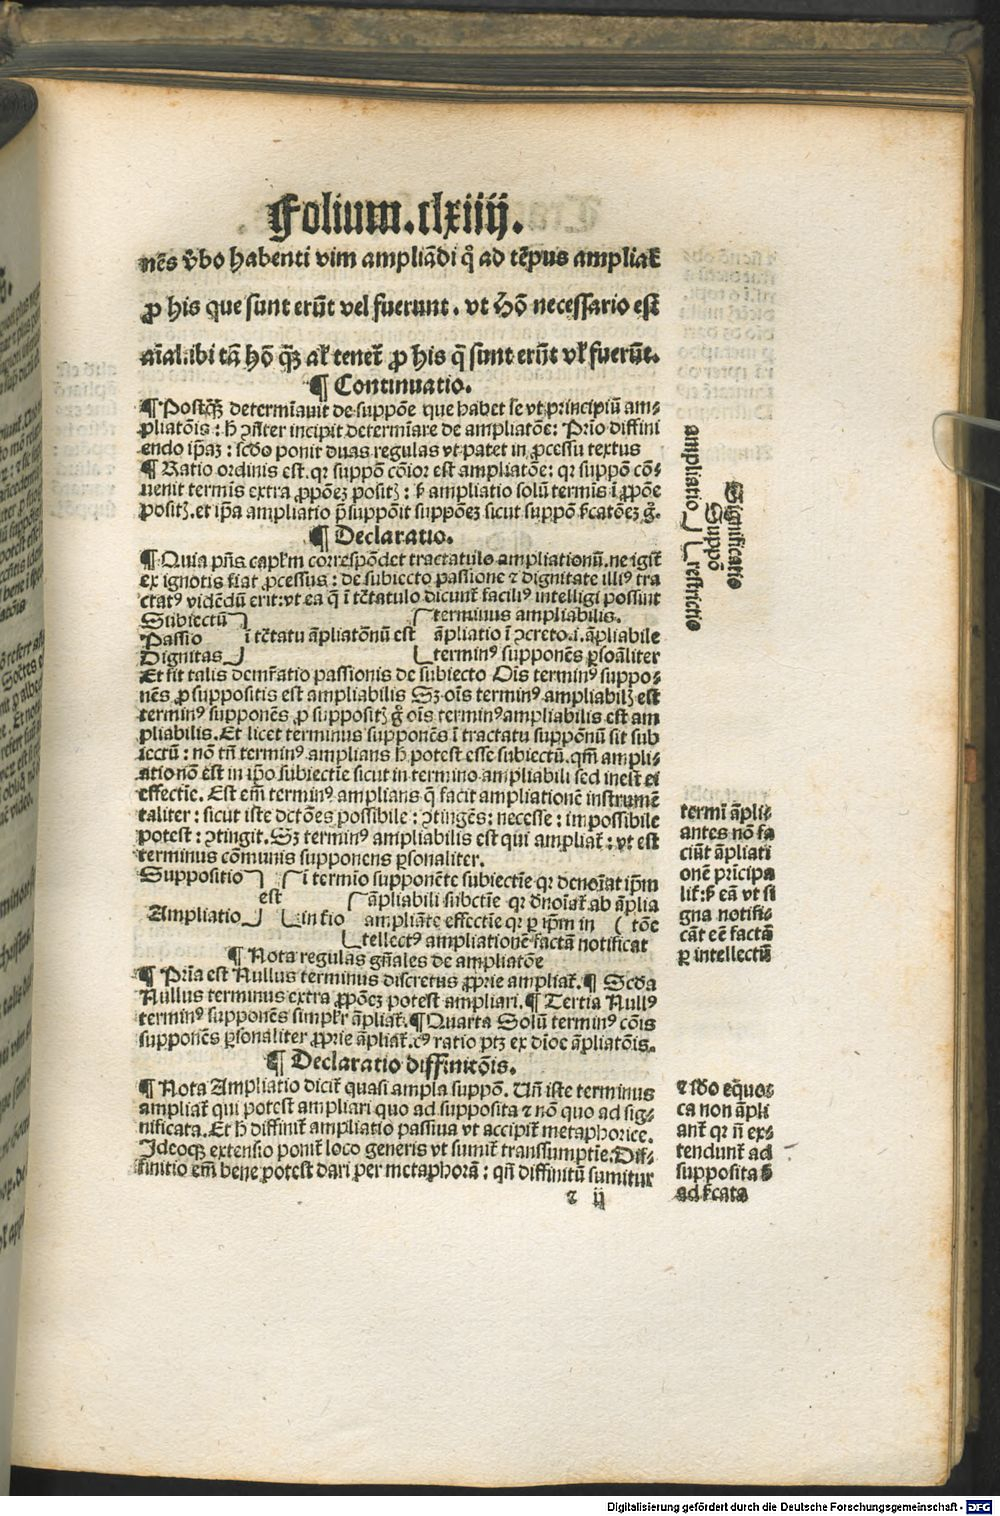 Folium. clxiiij.
nēs v̄bo habenti vim ampliādi qͦ ad tēpus ampliat̉
ꝓ his que sunt erūt vel fuerunt. vt Hō necessario est
aīal. ibi tā hō qꝫ al̉ tenet̉ ꝓ his q̄ sunt erūt vl̉ fuerūt.
¶ Continuatio.
¶ Postqꝫ determīauit de suppōe que habet se vt principiū am-
pliatōis: h̄ ꝯn̄ter incipit determīare de ampliatōe: Prīo diffini
endo ip̄aꝫ: scd̄o ponit duas regulas vt patet in ꝓcessu textus
¶ Ratio ordinis est. qr suppō cōior est ampliatōe: qr suppō cō-
uenit termīs extra ꝓpōeꝫ positꝭ: sꝫ ampliatio solū termīs ī ꝓpōe
positꝭ. et ip̄a ampliatio p̄suppōit suppōeꝫ sicut suppō sīcatōeꝫ gͦ.
¶ Declaratio.
¶ Quia pn̄s capl̉m correspōdet tractatulo ampliationū. ne igit̉
ex ignotis fiat ꝓcessus: de subiecto passione ⁊ dignitate illiꝰ tra
ctatꝰ vidēdū erit: vt ea q̄ ī tc̄tatulo dicunt̉ faciliꝰ intelligi possint
Subiectū terminus ampliabilis.
Passio ī tc̄tatu āpliatōnū est āpliatio ī ꝯcreto. i. āpliabile
Dignitas terminꝰ supponēs ꝑsoāliter
Et fit talis demr̄atio passionis de subiecto Oīs terminꝰ suppo-
nēs ꝓ suppositis est ampliabilis Sꝫ oīs terminꝰ ampliabilꝭ est
terminꝰ supponēs ꝓ suppositꝭ gͦ oīs terminꝰ ampliabilis est am
pliabilis. Et licet terminus supponēs ī tractatu suppōnū sit sub
iectū: nō tn̄ terminꝰ amplians h̄ potest esse subiectū. qm̄ ampli-
atio nō est in ip̄o subiectīe sicut in termino ampliabili sed inest ei
effectīe. Est em̄ terminꝰ amplians q̄ facit ampliationē instrumē
taliter: sicut iste dictōes possibile: ꝯtingēs: necesse: impossibile
potest: ꝯtingit. Sꝫ terminꝰ ampliabilis est qui ampliat̉: vt est
terminus cōmunis supponens ꝑsonaliter.
Suppositio ī termīo supponēte subiectīe qr denoīat ip̄m
est āpliabili subiectīe qr dn̄oiat̉ ab āplia
Ampliatio in tīo ampliāte effectīe qr ꝑ ip̄m in tōe
tellectꝰ ampliationē factā notificat
¶ Nota regulas gn̄ales de ampliatōe
¶ Prīa est Nullus terminus discretus ꝓprie ampliat̉. ¶ Scd̄a
Nullus terminus extra ꝓpōeꝫ potest ampliari. ¶ Tertia Nullꝰ
terminꝰ supponēs simpl̉r āpliat̉. ¶ Quarta Solū terminꝰ cōis
supponēs ꝑsonaliter ꝓprie āpliat̉. cꝰ ratio ptꝫ ex dīoe āpliatōis.
¶ Declaratio diffinitōis.
¶ Nota Ampliatio dicit̉ quasi ampla suppō. Un̄ iste terminus
ampliat̉ qui potest ampliari quo ad supposita ⁊ nō quo ad sig-
nificata. Et h̄ diffinit̉ ampliatio passiua vt accipit̉ metaphorice.
Ideoqꝫ extensio ponit̉ loco generis vt sumit̉ transsumptīe. Dif-
finitio em̄ bene potest dari per metaphorā: qn̄ diffinitū sumitur
⁊ ij
Significatio
Suppō
ampliatio restrictio
termī āpli-
antes nō fa
ciūt āpliati
onē prīcipa
lit̉: sꝫ eā vt si
gna notifi-
cāt eē factā
ꝑ intellectū
⁊ iō eq̄uo-
ca non āpli
ant̉ qr n̄ ex-
tendunt̉ ad
supposita sꝫ
ad sīcata
Digitalisierung gefördert durch die Deutsche Forschungsgemeinschaft - DFG